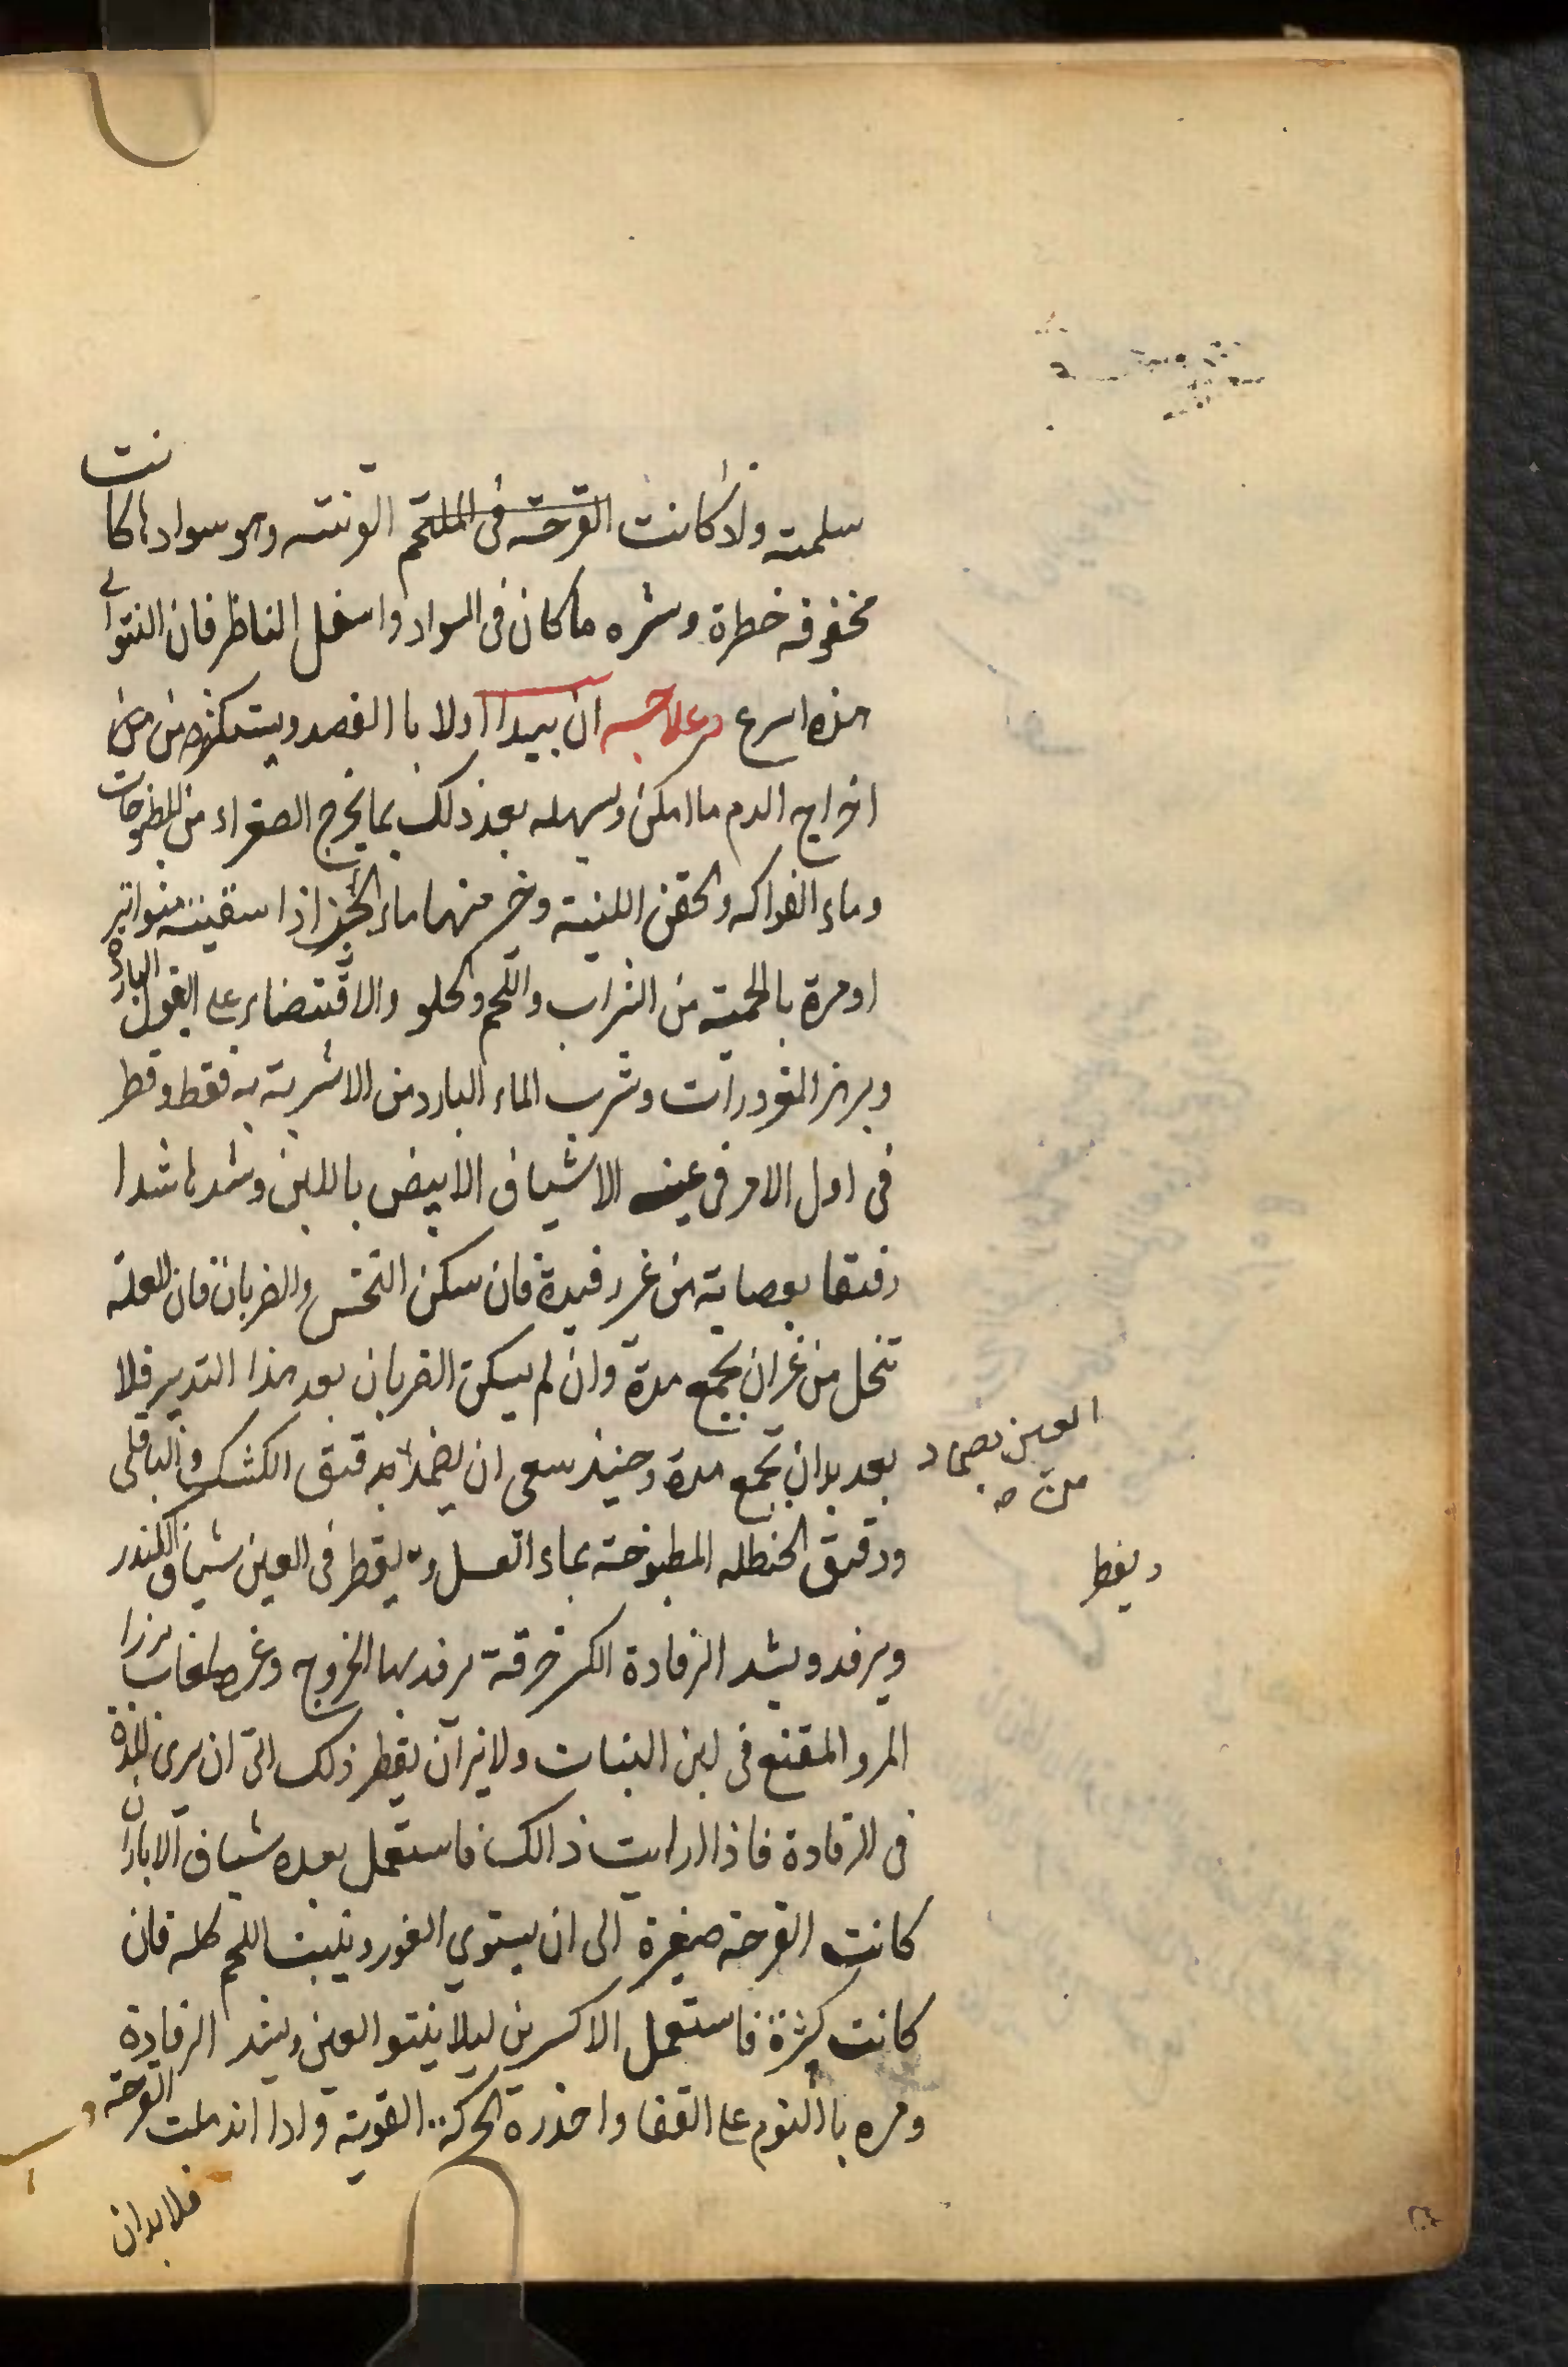 سلمته واذ كانت القرحة فى الملتحم القرنيته وهو سوادها كانت
مخفوفه خطرة وشره ما كان فى السواد واسفل الناظر فان النتوا الى
هذه اسرع وعلاجه ان يبدا اولا با الفصد ويستكثر من
اخراج الدم ما امكن ويسهله بعد ذلك بما يخرج الصفراء من المطبوخات
وماء الفواكه والحقن اللنية وخر منهما ماء الجبن اذا سقيته متواتر
او مرة بالحمية من الشراب واللحم والحلو والاقتضاء على البقول الباردة
وبرنر المزورات وشرب الماء البارد من الاشربة به فقط وقطر
فى اول الامر فى عينه الاشياف الابيض باللبن وشدها شدا
رفيقا بعصابة من غير رفيدة فان سكن النخس والضربان فان العلة
تنحل من غير ان يجمع مدة وان لم يسكن الضربان بعد هذا التدبير فلا
بعد بدان تجمع مدة وحينئذ سعى ان يضمدا به دقيق الكشك والباقلى
العين بضماد
من صه
ودقيق الحنطله المطبوخة بماء العسل و يقطر فى العين شياف الكندر
ويغطا
ويرفد ويشد الرفادة الكر خرقة يرفد بها الخروج وغر
المر والمقنع فى لبن البنات ولايزان يقطر ذلك الى ان يرى المدة
فى الرفادة فاذا ارايت ذالك فاستعمل بعده شياف الابار ان
كانت القرحة صغيرة الى ان يستوي الغور وينبت اللحم كله فان
كانت كثرة فاستعمل الاكسرين ليلا ينتو العين ويشد الرفادة
ومره باالنوم على القفا واحذره الحركة القوية واذا اندملت القرحة
فلابدان